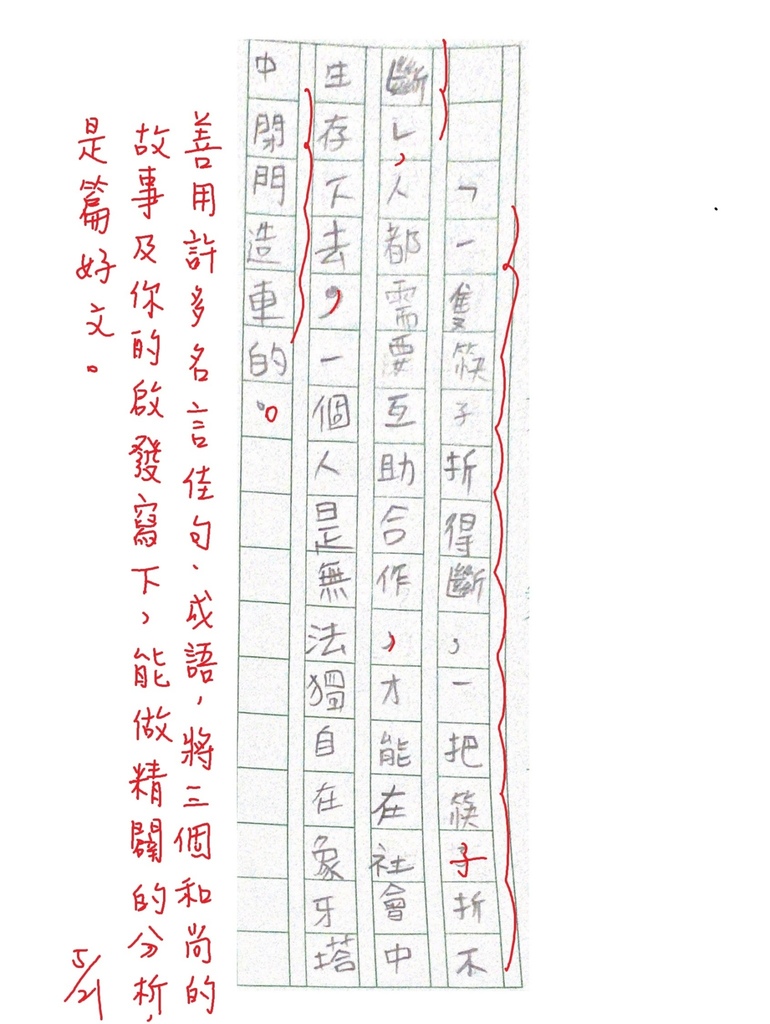 「一隻筷子折得斷，一把筷子折不
斷」，人都需要互助合作，才能在社會中
生存下去，一個人是無法獨自在象牙塔
中閉門造車的。
善用許多名言佳句、成語，將三個和尚的
故事及你的啟發寫下，能做精闢的分析，
是篇好文。
5/21